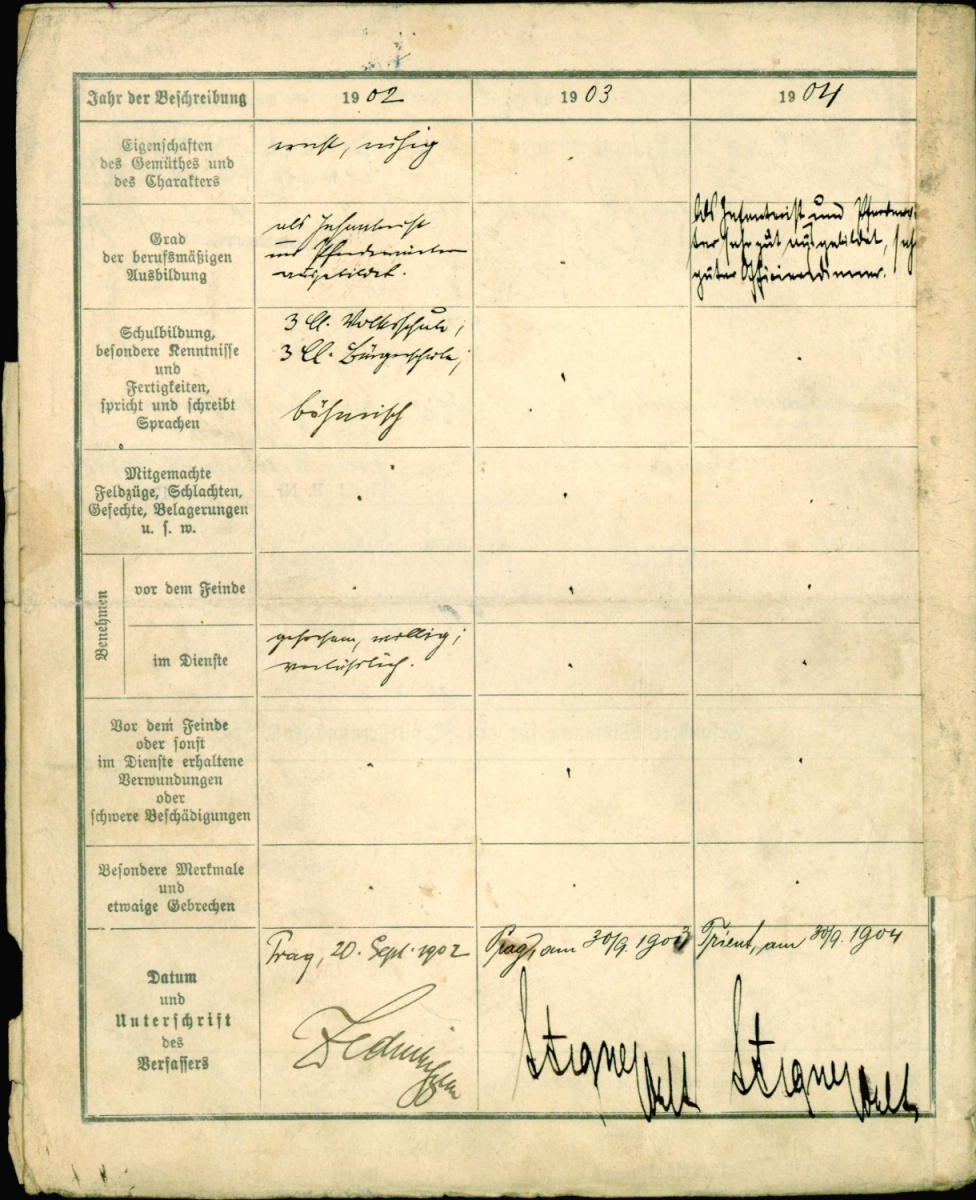 Jahr der Beschreibung 1902 1903 1904
Eigenschaften
des Gemüthes und
des Charakters
ernst, ruhig
Grad
der berufsmäßigen
Ausbildung
als Infanterist
und Pferdewärter
ausgebildet.
Als Infanterist und Pferdewär-
ter sehr gut ausgebildet, sehr
guter Officiersdiener.
Schulbildung,
besondere Kenntnisse
und
Fertigkeiten,
spricht und schreibt
Sprachen
3 Cl. Volksschule;
3 Cl. Bürgerschule;
böhmisch
Mitgemachte
Feldzüge, Schlachten,
Gefechte, Belagerungen
u. s. w.
Benehmen
vor dem Feinde
im Dienste
gehorsam, willig;
verlässlich.
Vor dem Feinde
oder sonst
im Dienste erhaltene
Verwundungen
oder
schwere Beschädigungen
Besondere Merkmale
und
etwaige Gebrechen
Datum
und
Unterschrift
des
Verfassers
Prag, 20. Sept. 1902
Prag, am 30/9. 1903
Trient, am 30/9. 1904